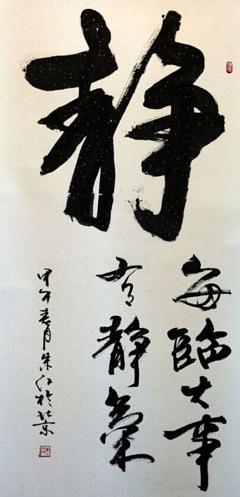 静
每臨大事
有靜氣
甲午春月朱於北京